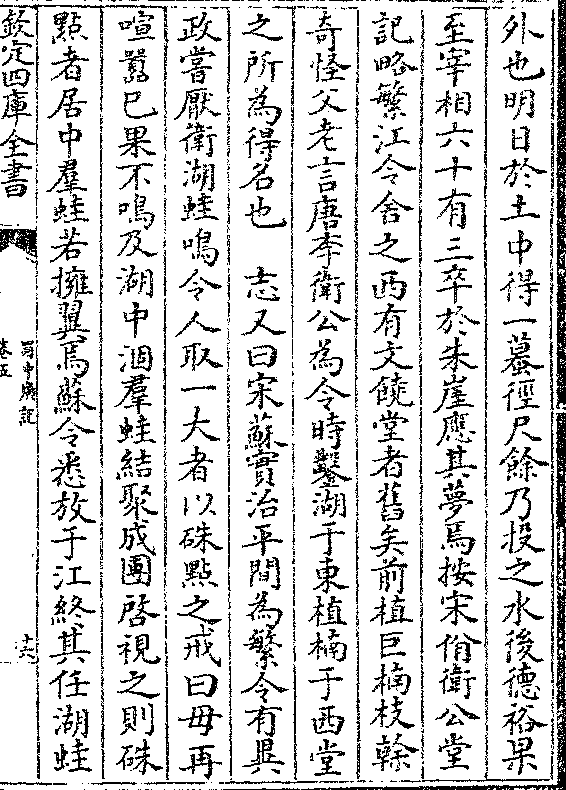 外也明日於土中得一蟇徑尺餘乃投之水後德裕果
至宰相六十有三卒於朱崖應其夢焉按宋佾衛公堂
記略繁江令舍之西有文饒堂者舊矣前植巨楠枝榦
奇怪父老言唐李衛公為令時鑿湖于東植楠于西堂
之所為得名也　志又曰宋蘇實治平間為繁令有異
政嘗厭衛湖蛙鳴令人取一大者以硃點之戒曰毋再
喧嚣已果不鳴及湖中涸羣蛙結聚成團啓視之則硃
點者居中羣蛙若擁翼焉蘇令悉放于江終其任湖蛙
欽定四庫全書
蜀中廣記
卷五
十六